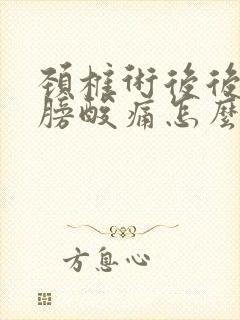 頚椎術後後
膀酸痛怎麼
方息心